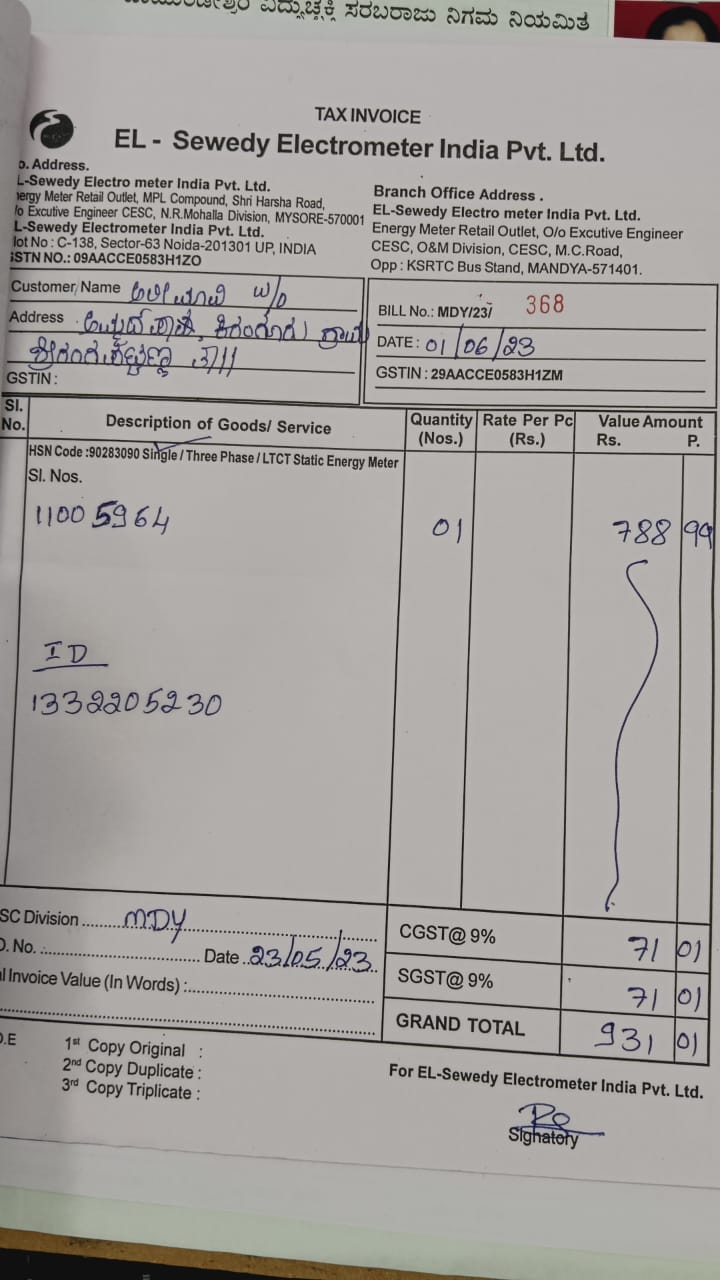 ವಿದ್ಯುಚ್ಛಕ್ತಿ ಸರಬರಾಜು ನಿಗಮ ನಿಯಮಿತ
TAX INVOICE
EL - Sewedy Electrometer India Pvt. Ltd.
o. Address.
L-Sewedy Electro meter India Pvt. Ltd.
nergy Meter Retail Outlet, MPL Compound, Shri Harsha Road,
/o Excutive Engineer CESC, N.R.Mohalla Division, MYSORE-570001
L-Sewedy Electrometer India Pvt. Ltd.
lot No : C-138, Sector-63 Noida-201301 UP, INDIA
GSTN NO.: 09AACCE0583H1ZO
Branch Office Address .
EL-Sewedy Electro meter India Pvt. Ltd.
Energy Meter Retail Outlet, O/o Excutive Engineer
CESC, O&M Division, CESC, M.C.Road,
Opp : KSRTC Bus Stand, MANDYA-571401.
Customer Name W/o
Address
GSTIN :
BILL No.: MDY/23/ 368
DATE : 01/06/23
GSTIN : 29AACCE0583H1ZM
Sl. No. Description of Goods/ Service Quantity (Nos.) Rate Per Pc (Rs.) Value Amount Rs. P.
HSN Code :90283090 Single / Three Phase / LTCT Static Energy Meter
Sl. Nos.
11005964 01 788 99
ID
1332205230
SC Division MDY
O. No. Date 23/05/23
l Invoice Value (In Words) :
CGST@ 9% 71 01
SGST@ 9% 71 01
GRAND TOTAL 931 01
O.E
1st Copy Original :
2nd Copy Duplicate :
3rd Copy Triplicate :
For EL-Sewedy Electrometer India Pvt. Ltd.
Sighatory